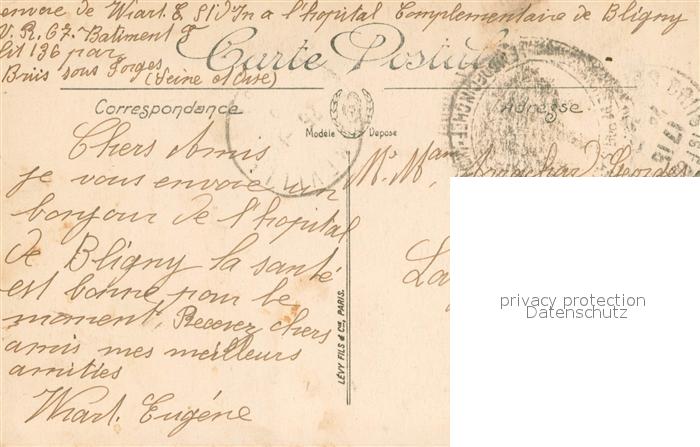 envoie de Wiart E Sld Inf a l'hopital Complementaire de Bligny
V. R. 67. Batiment F
lit 136 par
Briis sous Forges (Seine et Oise)
Carte Postale
Correspondance
Adresse
Modèle Deposé
Chers Amis
je vous envoie un
bonjour de l'hopital
de Bligny la santé
est bonne pour le
moment, Recevez chers
amis mes meilleurs
amities
Wiart. Eugéne
LÉVY FILS & Cie, PARIS.
Mr Mme Georges
La
privacy protection
Datenschutz